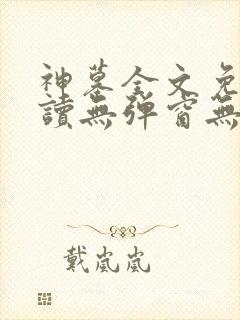 神墓全文免
讀無彈窗無
戴嵐嵐